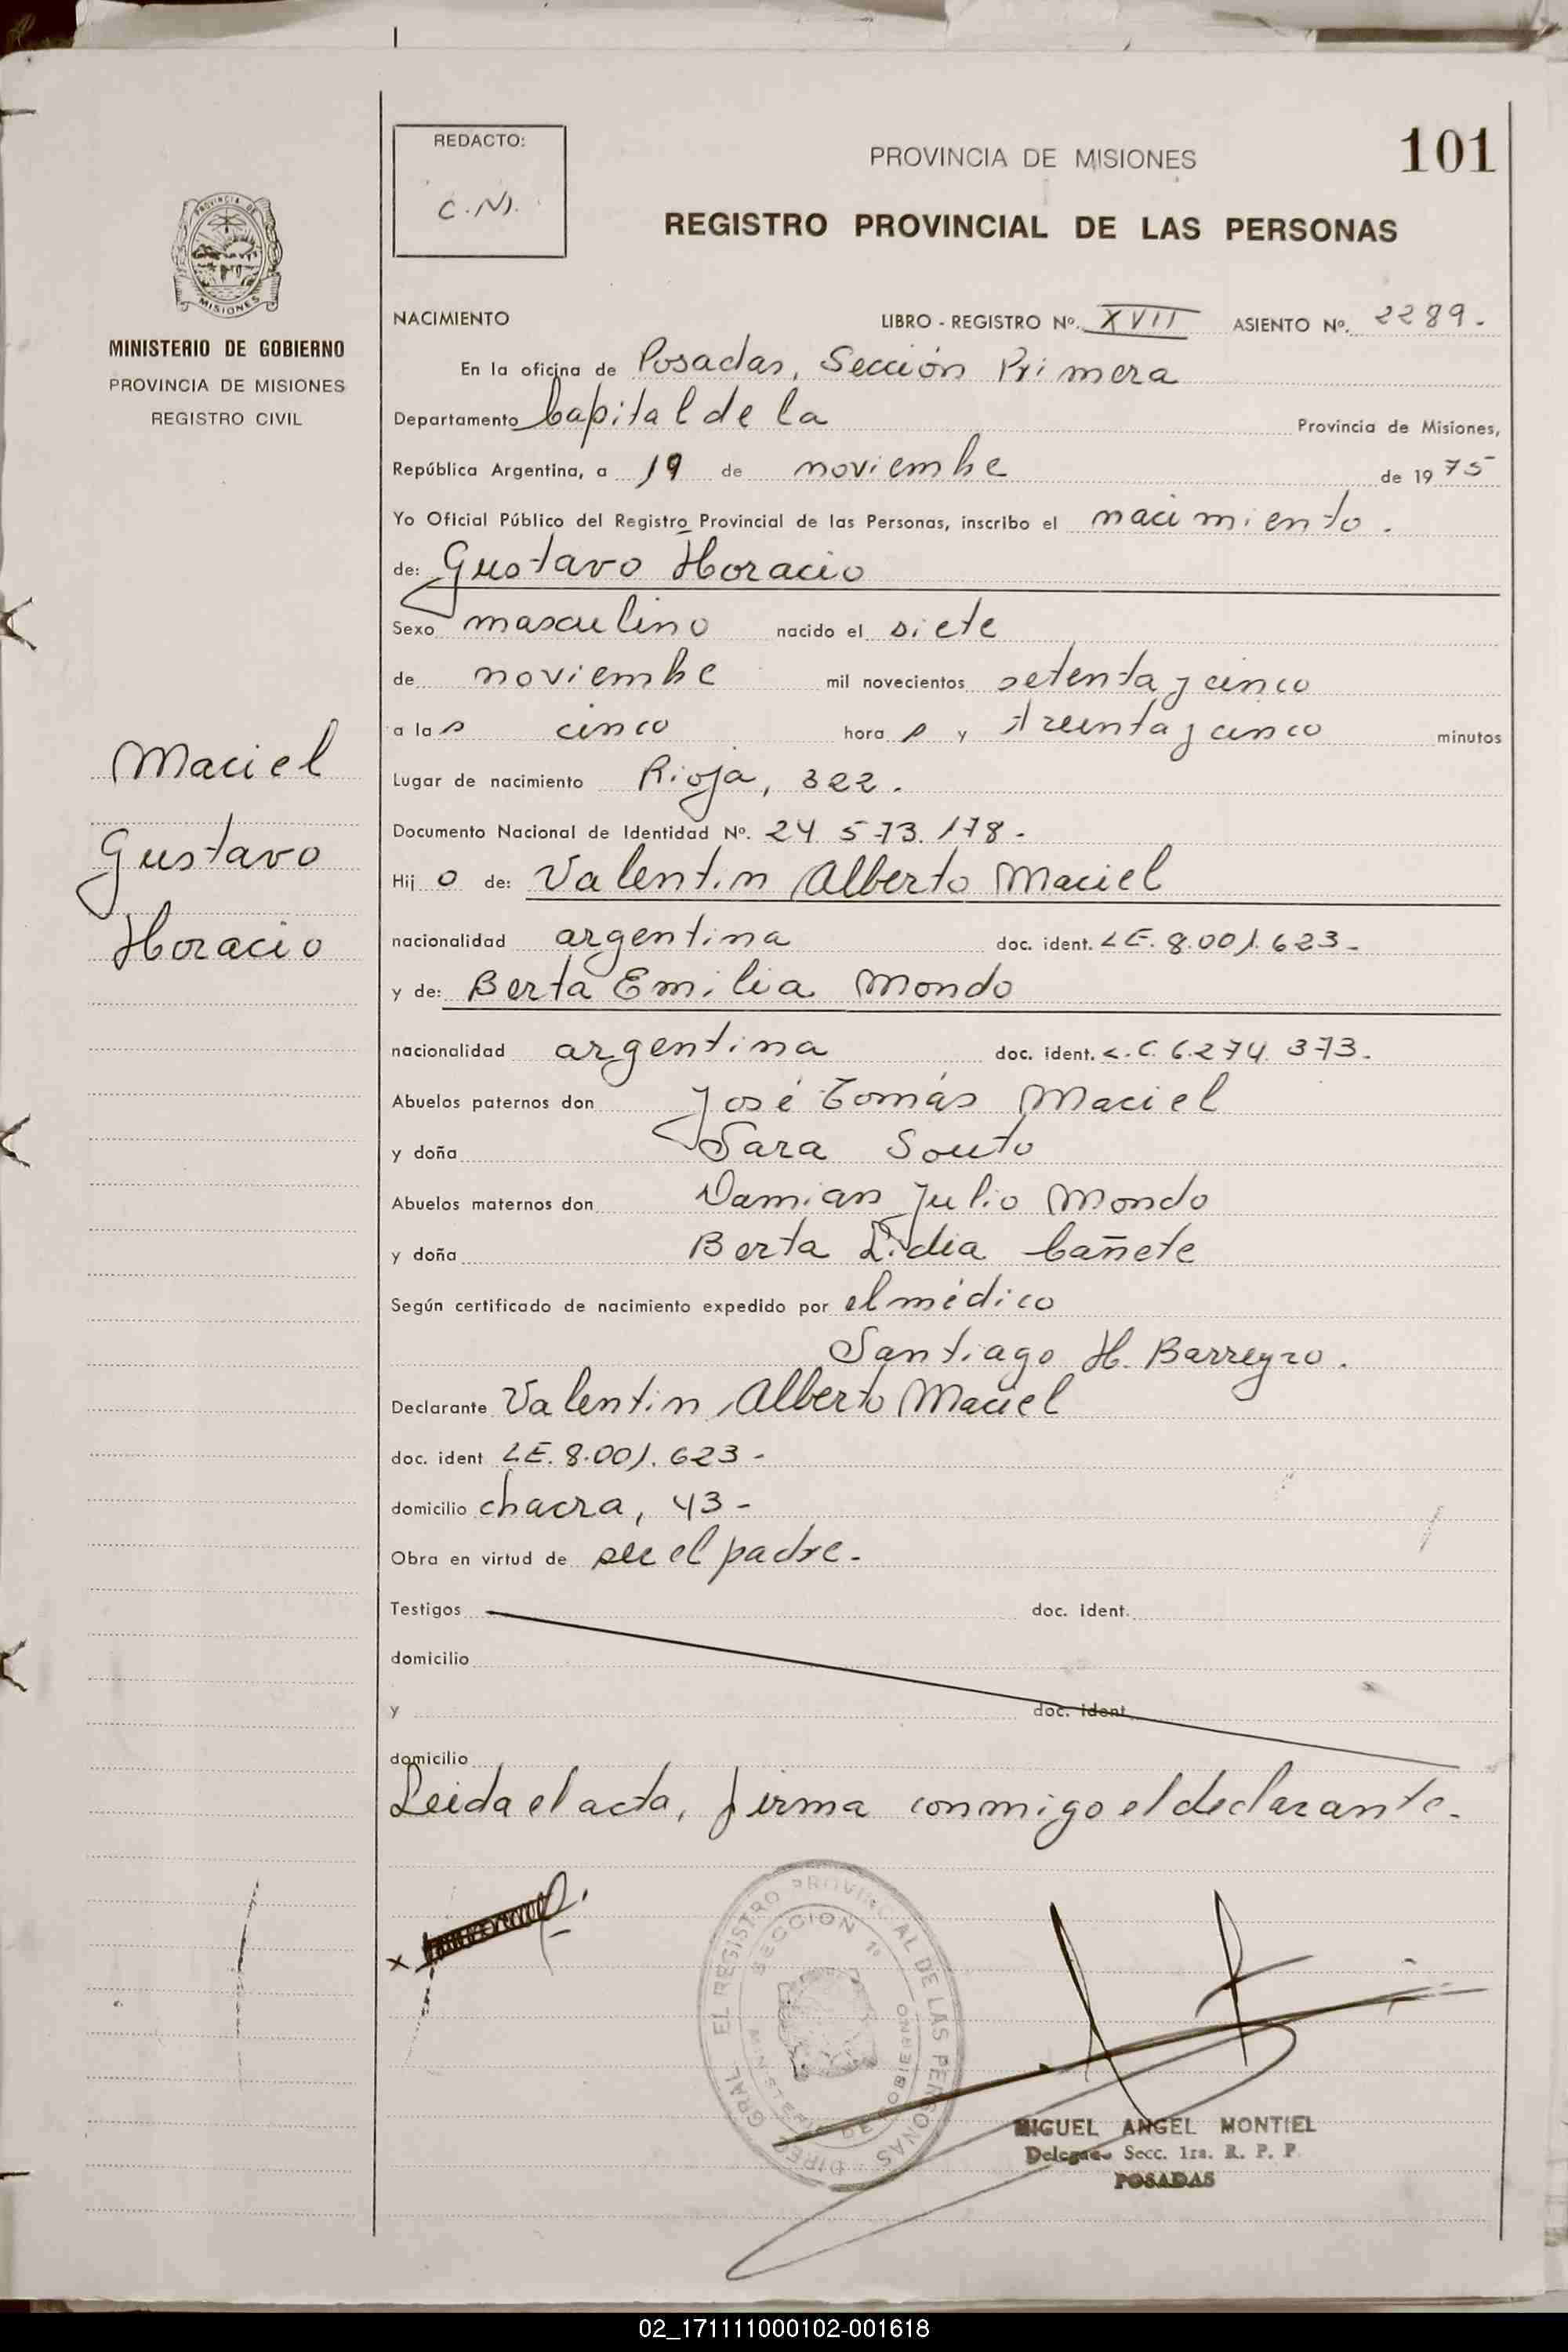 REDACTO:
C.N.
PROVINCIA DE MISIONES
101
REGISTRO PROVINCIAL DE LAS PERSONAS
PROVINCIA DE
MISIONES
MINISTERIO DE GOBIERNO
PROVINCIA DE MISIONES
REGISTRO CIVIL
NACIMIENTO LIBRO - REGISTRO Nº. XVII ASIENTO Nº. 2289.
En la oficina de Posadas, Sección Primera
Departamento Capital de la Provincia de Misiones,
República Argentina, a 19 de noviembre de 1975
Yo Oficial Público del Registro Provincial de las Personas, inscribo el nacimiento.
de: Gustavo Horacio
Sexo masculino nacido el siete
de noviembre mil novecientos setenta y cinco
a las cinco horas y treinta y cinco minutos
Lugar de nacimiento Rioja, 322.
Documento Nacional de Identidad Nº. 24.573.178.
Hijo de: Valentin Alberto Maciel
nacionalidad argentina doc. ident. LE. 8.001.623-
y de: Berta Emilia Mondo
nacionalidad argentina doc. ident. L.C. 6.274.373.
Abuelos paternos don José Tomás Maciel
y doña Sara Souto
Abuelos maternos don Damian Julio Mondo
y doña Berta Lidia Cañete
Según certificado de nacimiento expedido por el médico
Santiago H. Barreyro.
Declarante Valentin Alberto Maciel
doc. ident LE. 8.001.623-
domicilio chacra, 43-
Obra en virtud de ser el padre.
Testigos doc. ident.
domicilio
y doc. ident
domicilio
Leida el acta, firma conmigo el declarante.
Maciel
Gustavo
Horacio
x
DIREC. GRAL EL REGISTRO PROVINCIAL DE LAS PERSONAS
SECCION 1º
MINISTERIO DE GOBIERNO
MIGUEL ANGEL MONTIEL
Delegado Secc. 1ra. R. P. P.
POSADAS
02_171111000102-001618